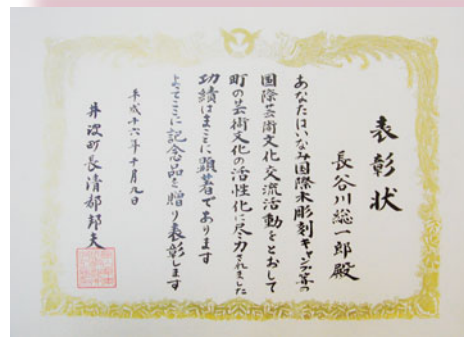 表彰状
長谷川総一郎殿
あなたはいなみ国際木彫刻キャンプ等の
国際芸術文化交流活動をとおして
町の芸術文化の活性化に尽力されました
功績はまことに顕著であります
よってここに記念品を贈り表彰します
平成十六年十月九日
井波町長清都邦夫